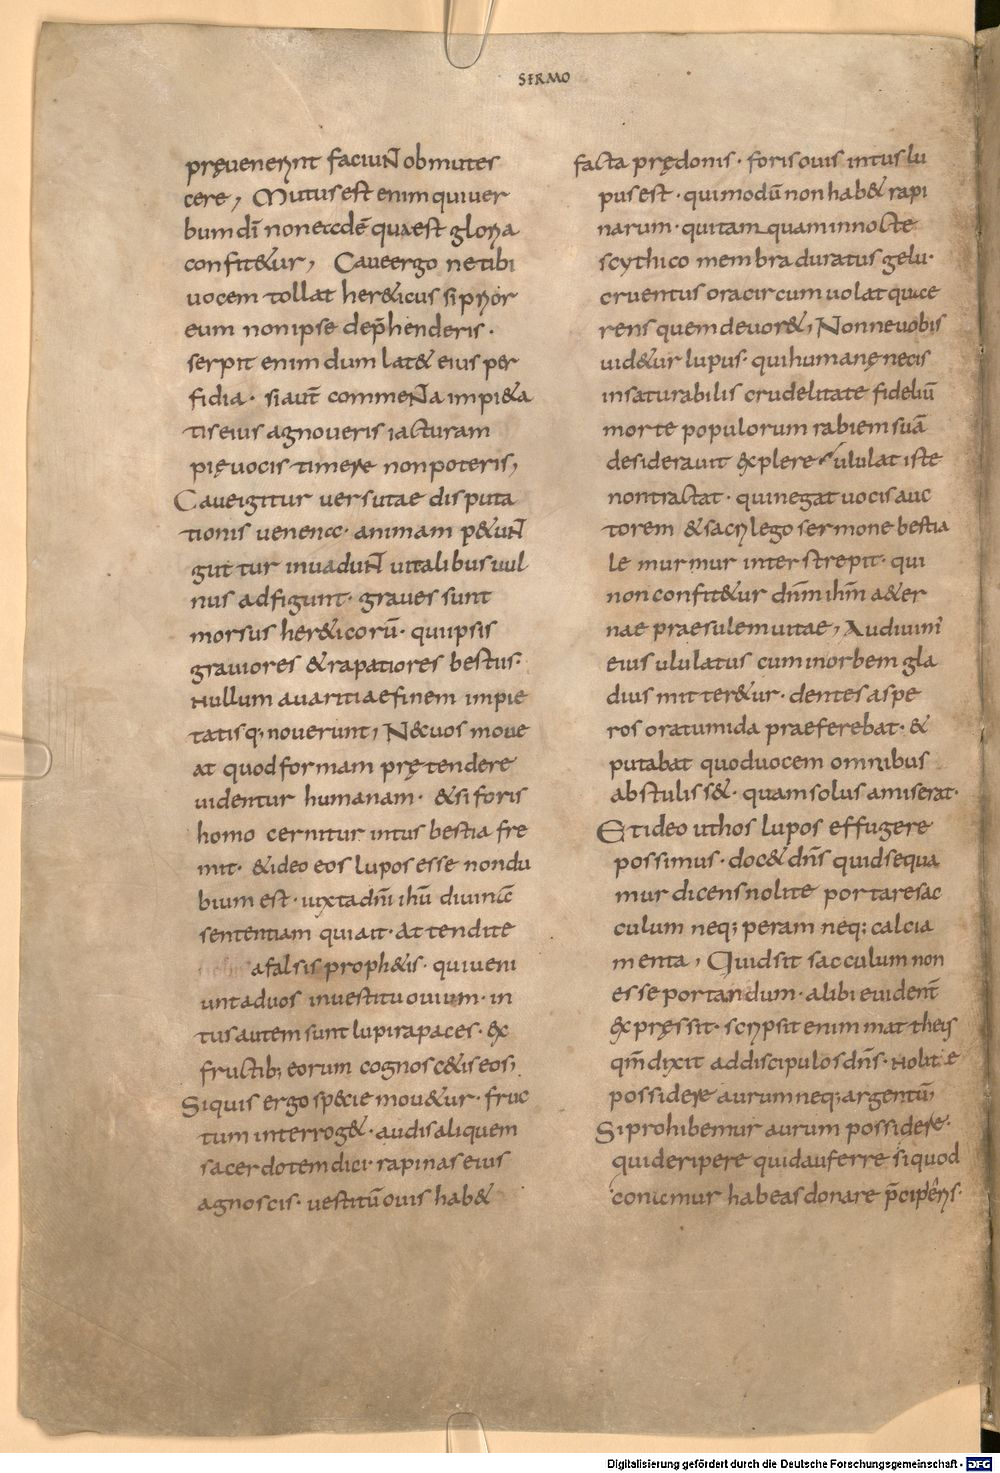 SERMO
pręvenerint faciuNt obmutes
cere, Mutus est enim qui ver
bum dī non eccdē quaest gloria
confit&ur, Cave ergo ne tibi
vocem tollat her&icus si prior
eum non ipse dep̄henderis.
serpit enim dum lat& eius per
fidia. si aut̄ commeNta impi&a
tis eius agnoveris iacturam
pię vocis timere non poteris,
Cave igitur versutae disputa
tionis venena. animam p&uNt
guttur invaduNt vitalibus vul
nus adfigunt. graves sunt
morsus her&icorū. qui ipsis
graviores & rapatiores bestiis.
Nullum avaritiae finem impie
tatisq; noverunt, N& vos move
at quod formam prętendere
videntur humanam. & si foris
homo cernitur intus bestia fre
mit. & ideo eos lupos esse non du
bium est. iuxta dn̄i ihū divinā
sententiam qui ait. Attendite
a falsis proph&is. qui veni
unt ad vos in vestitu ovium. in
tus autem sunt lupi rapaces. ex
fructib; eorum cognosc&is eos,
Si quis ergo specie mov&ur. fruc
tum interrog&. audis aliquem
sacerdotem dici. rapinas eius
agnoscis. vestitū ovis hab&
facta prędonis. foris ovis intus lu
pus est. qui modū non hab& rapi
narum. qui tam quam in nocte
scythico membra duratus gelu.
cruentus ora circumvolat quae
rens quem devor&, Nonne vobis
vid&ur lupus. qui humanę necis
insaturabilis crudelitate fideliū
morte populorum rabiem suā
desideravit explere. ululat iste
non tractat. qui negat vocis auc
torem & sacrilego sermone bestia
le murmur interstrepit. qui
non confit&ur dn̄m ihm̄ a&er
nae praesulem vitae, Audivimꝰ
eius ululatus cum in orbem gla
dius mitter&ur. dentes aspe
ros ora tumida praeferebat. &
putabat quod vocem omnibus
abstuliss&. quam solus amiserat.
Et ideo ut hos lupos effugere
possimus. doc& dn̄s quid sequa
mur dicens nolite portare sac
culum neq; peram neq; calcia
menta, Quid sit sacculum non
esse portandum. alibi evident̄
expręssit. scripsit enim mattheꝰ
qm̄ dixit ad discipulos dn̄s. Nolite
possidere aurum neq; argentū,
Si prohibemur aurum possidere.
quid eripere quid auferre si quod